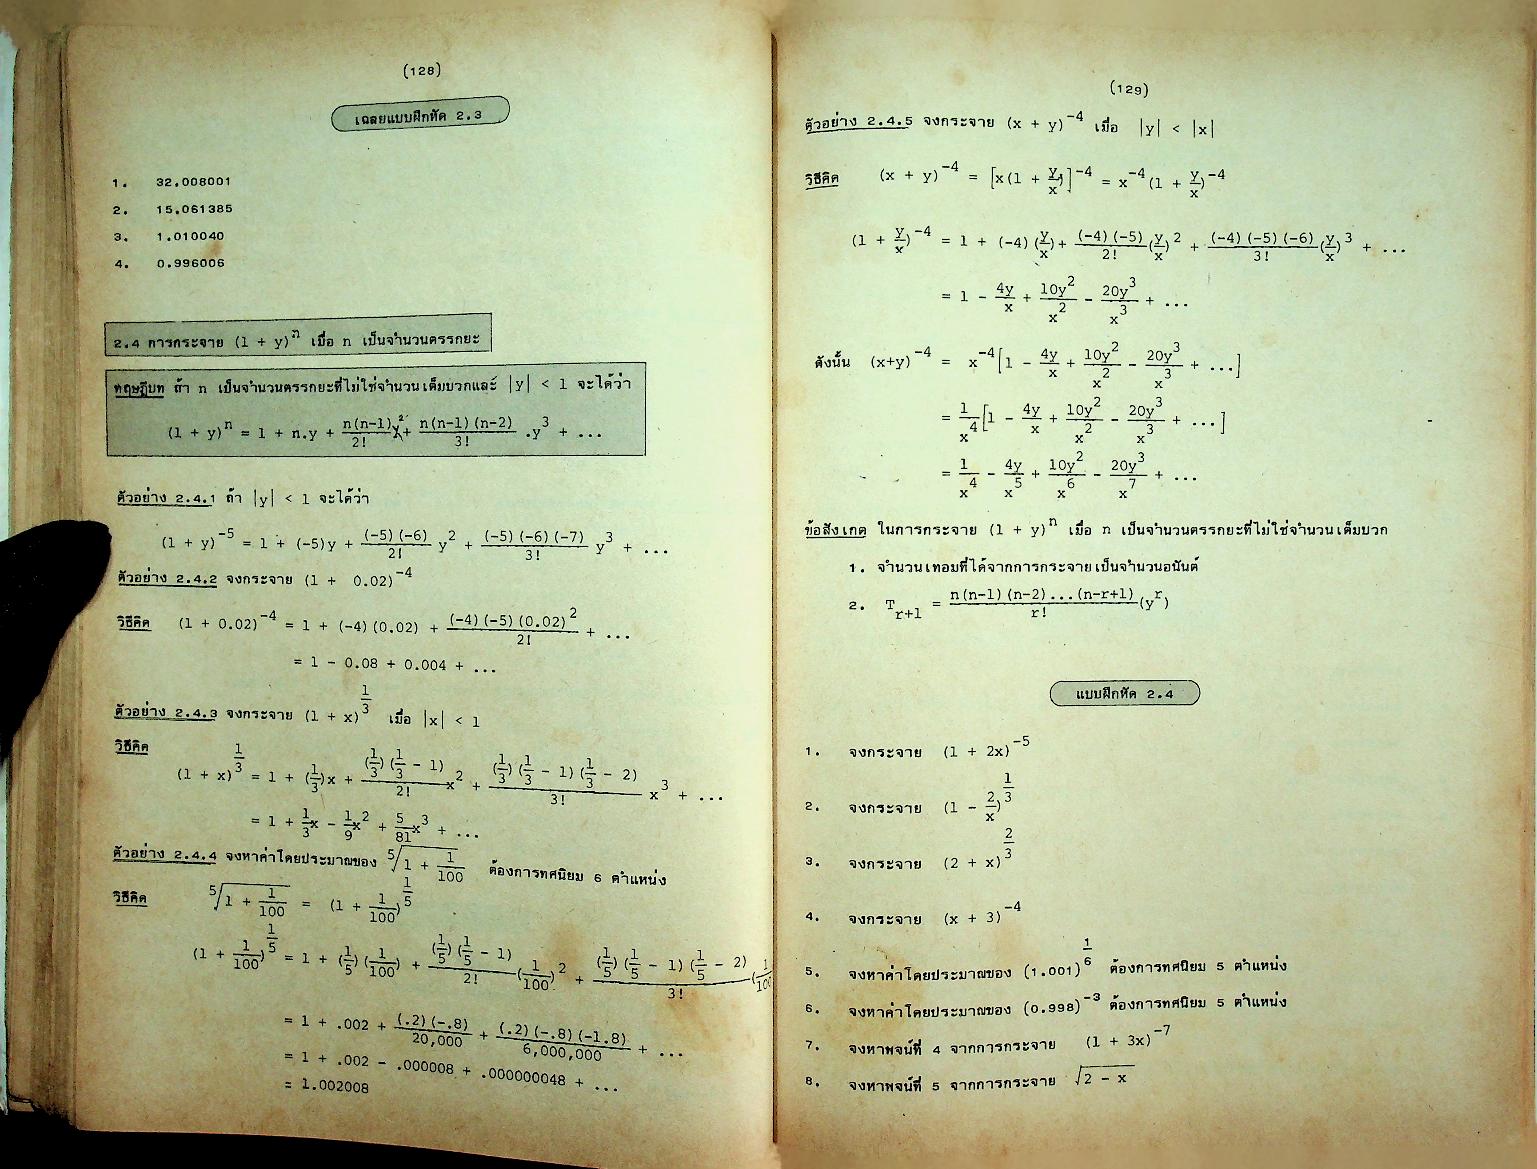 (128)
เฉลยแบบฝึกหัด 2.3
1. 32.008001
2. 15.061385
3. 1.010040
4. 0.996006
2.4 การกระจาย (1 + y)^n เมื่อ n เป็นจำนวนตรรกยะ
ทฤษฎีบท ถ้า n เป็นจำนวนตรรกยะที่ไม่ใช่จำนวนเต็มบวกและ |y| < 1 จะได้ว่า
(1 + y)^n = 1 + n.y + n(n-1)/2! y^2 + n(n-1)(n-2)/3! .y^3 + ...
ตัวอย่าง 2.4.1 ถ้า |y| < 1 จะได้ว่า
(1 + y)^-5 = 1 + (-5)y + (-5)(-6)/2! y^2 + (-5)(-6)(-7)/3! y^3 + ...
ตัวอย่าง 2.4.2 จงกระจาย (1 + 0.02)^-4
วิธีคิด (1 + 0.02)^-4 = 1 + (-4)(0.02) + (-4)(-5)(0.02)^2/2! + ...
= 1 - 0.08 + 0.004 + ...
ตัวอย่าง 2.4.3 จงกระจาย (1 + x)^1/3 เมื่อ |x| < 1
วิธีคิด
(1 + x)^1/3 = 1 + (1/3)x + (1/3)(1/3 - 1)/2! x^2 + (1/3)(1/3 - 1)(1/3 - 2)/3! x^3 + ...
= 1 + 1/3 x - 1/9 x^2 + 5/81 x^3 + ...
ตัวอย่าง 2.4.4 จงหาค่าโดยประมาณของ ⁵√(1 + 1/100) ต้องการทศนิยม 6 ตำแหน่ง
วิธีคิด ⁵√(1 + 1/100) = (1 + 1/100)^1/5
(1 + 1/100)^1/5 = 1 + (1/5)(1/100) + (1/5)(1/5 - 1)/2! (1/100)^2 + (1/5)(1/5 - 1)(1/5 - 2)/3! (1/100
= 1 + .002 + (.2)(-.8)/20,000 + (.2)(-.8)(-1.8)/6,000,000 + ...
= 1 + .002 - .000008 + .000000048 + ...
= 1.002008
(129)
ตัวอย่าง 2.4.5 จงกระจาย (x + y)^-4 เมื่อ |y| < |x|
วิธีคิด (x + y)^-4 = [x(1 + y/x)]^-4 = x^-4(1 + y/x)^-4
(1 + y/x)^-4 = 1 + (-4)(y/x) + (-4)(-5)/2! (y/x)^2 + (-4)(-5)(-6)/3! (y/x)^3 + ...
= 1 - 4y/x + 10y^2/x^2 - 20y^3/x^3 + ...
ดังนั้น (x+y)^-4 = x^-4[1 - 4y/x + 10y^2/x^2 - 20y^3/x^3 + ...]
= 1/x^4[1 - 4y/x + 10y^2/x^2 - 20y^3/x^3 + ...]
= 1/x^4 - 4y/x^5 + 10y^2/x^6 - 20y^3/x^7 + ...
ข้อสังเกต ในการกระจาย (1 + y)^n เมื่อ n เป็นจำนวนตรรกยะที่ไม่ใช่จำนวนเต็มบวก
1. จำนวนเทอมที่ได้จากการกระจายเป็นจำนวนอนันต์
2. T_r+1 = n(n-1)(n-2)...(n-r+1)/r! (y^r)
แบบฝึกหัด 2.4
1. จงกระจาย (1 + 2x)^-5
2. จงกระจาย (1 - 2/x)^1/3
3. จงกระจาย (2 + x)^2/3
4. จงกระจาย (x + 3)^-4
5. จงหาค่าโดยประมาณของ (1.001)^1/6 ต้องการทศนิยม 5 ตำแหน่ง
6. จงหาค่าโดยประมาณของ (0.998)^-3 ต้องการทศนิยม 5 ตำแหน่ง
7. จงหาพจน์ที่ 4 จากการกระจาย (1 + 3x)^-7
8. จงหาพจน์ที่ 5 จากการกระจาย √(2 - x)